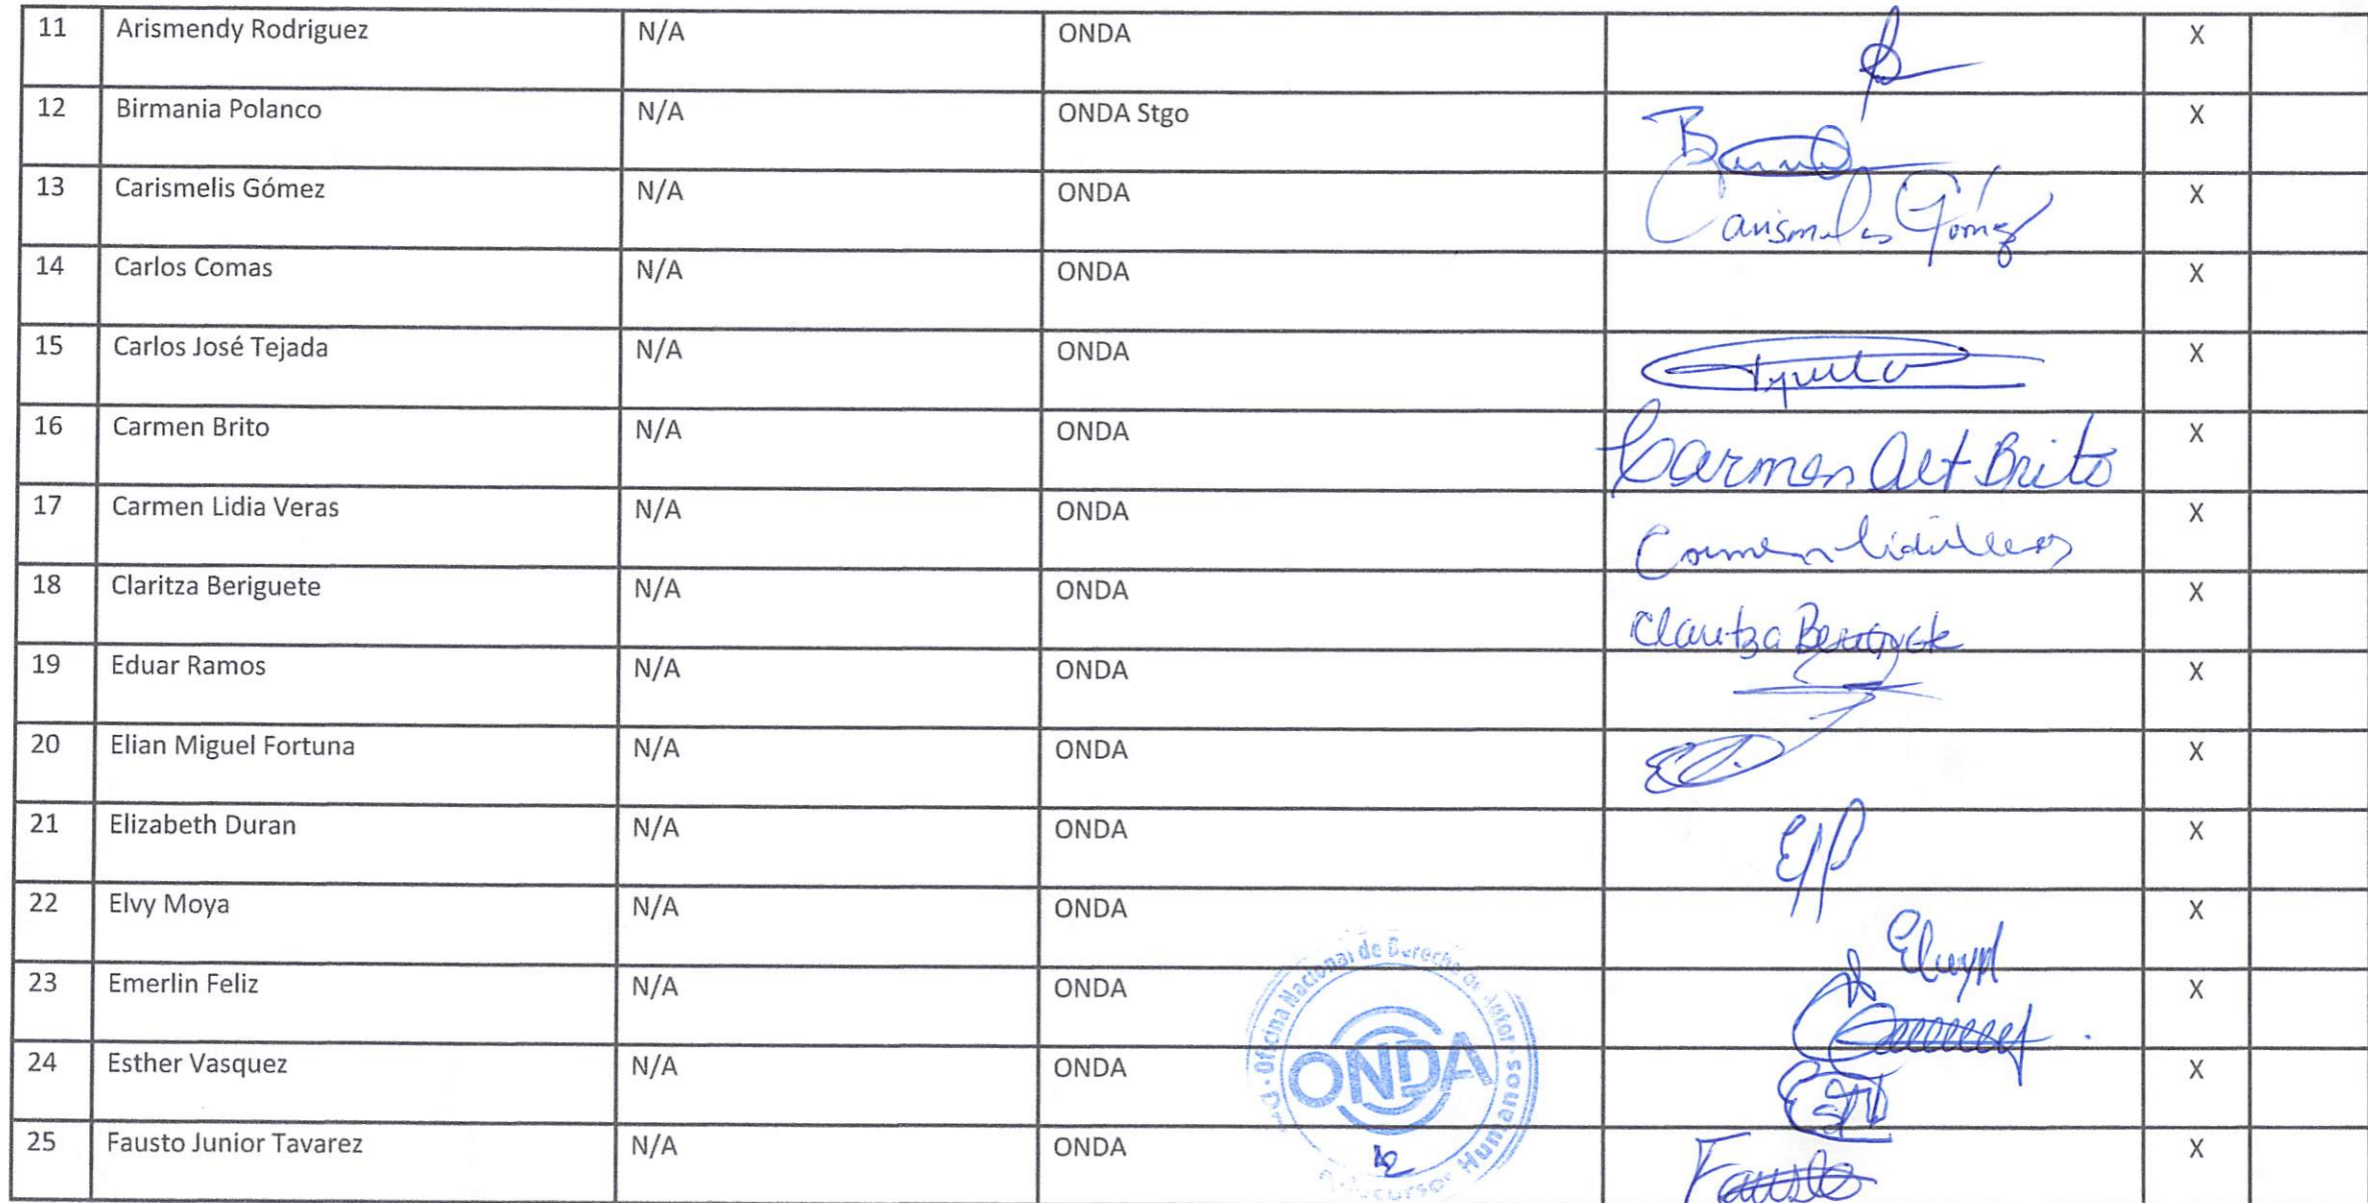 11 Arismendy Rodriguez N/A ONDA X
12 Birmania Polanco N/A ONDA Stgo X
13 Carismelis Gómez N/A ONDA Carismelis Gómez X
14 Carlos Comas N/A ONDA X
15 Carlos José Tejada N/A ONDA X
16 Carmen Brito N/A ONDA Carmen Alt Brito X
17 Carmen Lidia Veras N/A ONDA Carmen X
18 Claritza Beriguete N/A ONDA Claritza Beriguete X
19 Eduar Ramos N/A ONDA X
20 Elian Miguel Fortuna N/A ONDA X
21 Elizabeth Duran N/A ONDA X
22 Elvy Moya N/A ONDA X
23 Emerlin Feliz N/A ONDA X
24 Esther Vasquez N/A ONDA X
25 Fausto Junior Tavarez N/A ONDA Fausto X
Oficina Nacional de Derecho de Autor
ONDA
Recursos Humanos